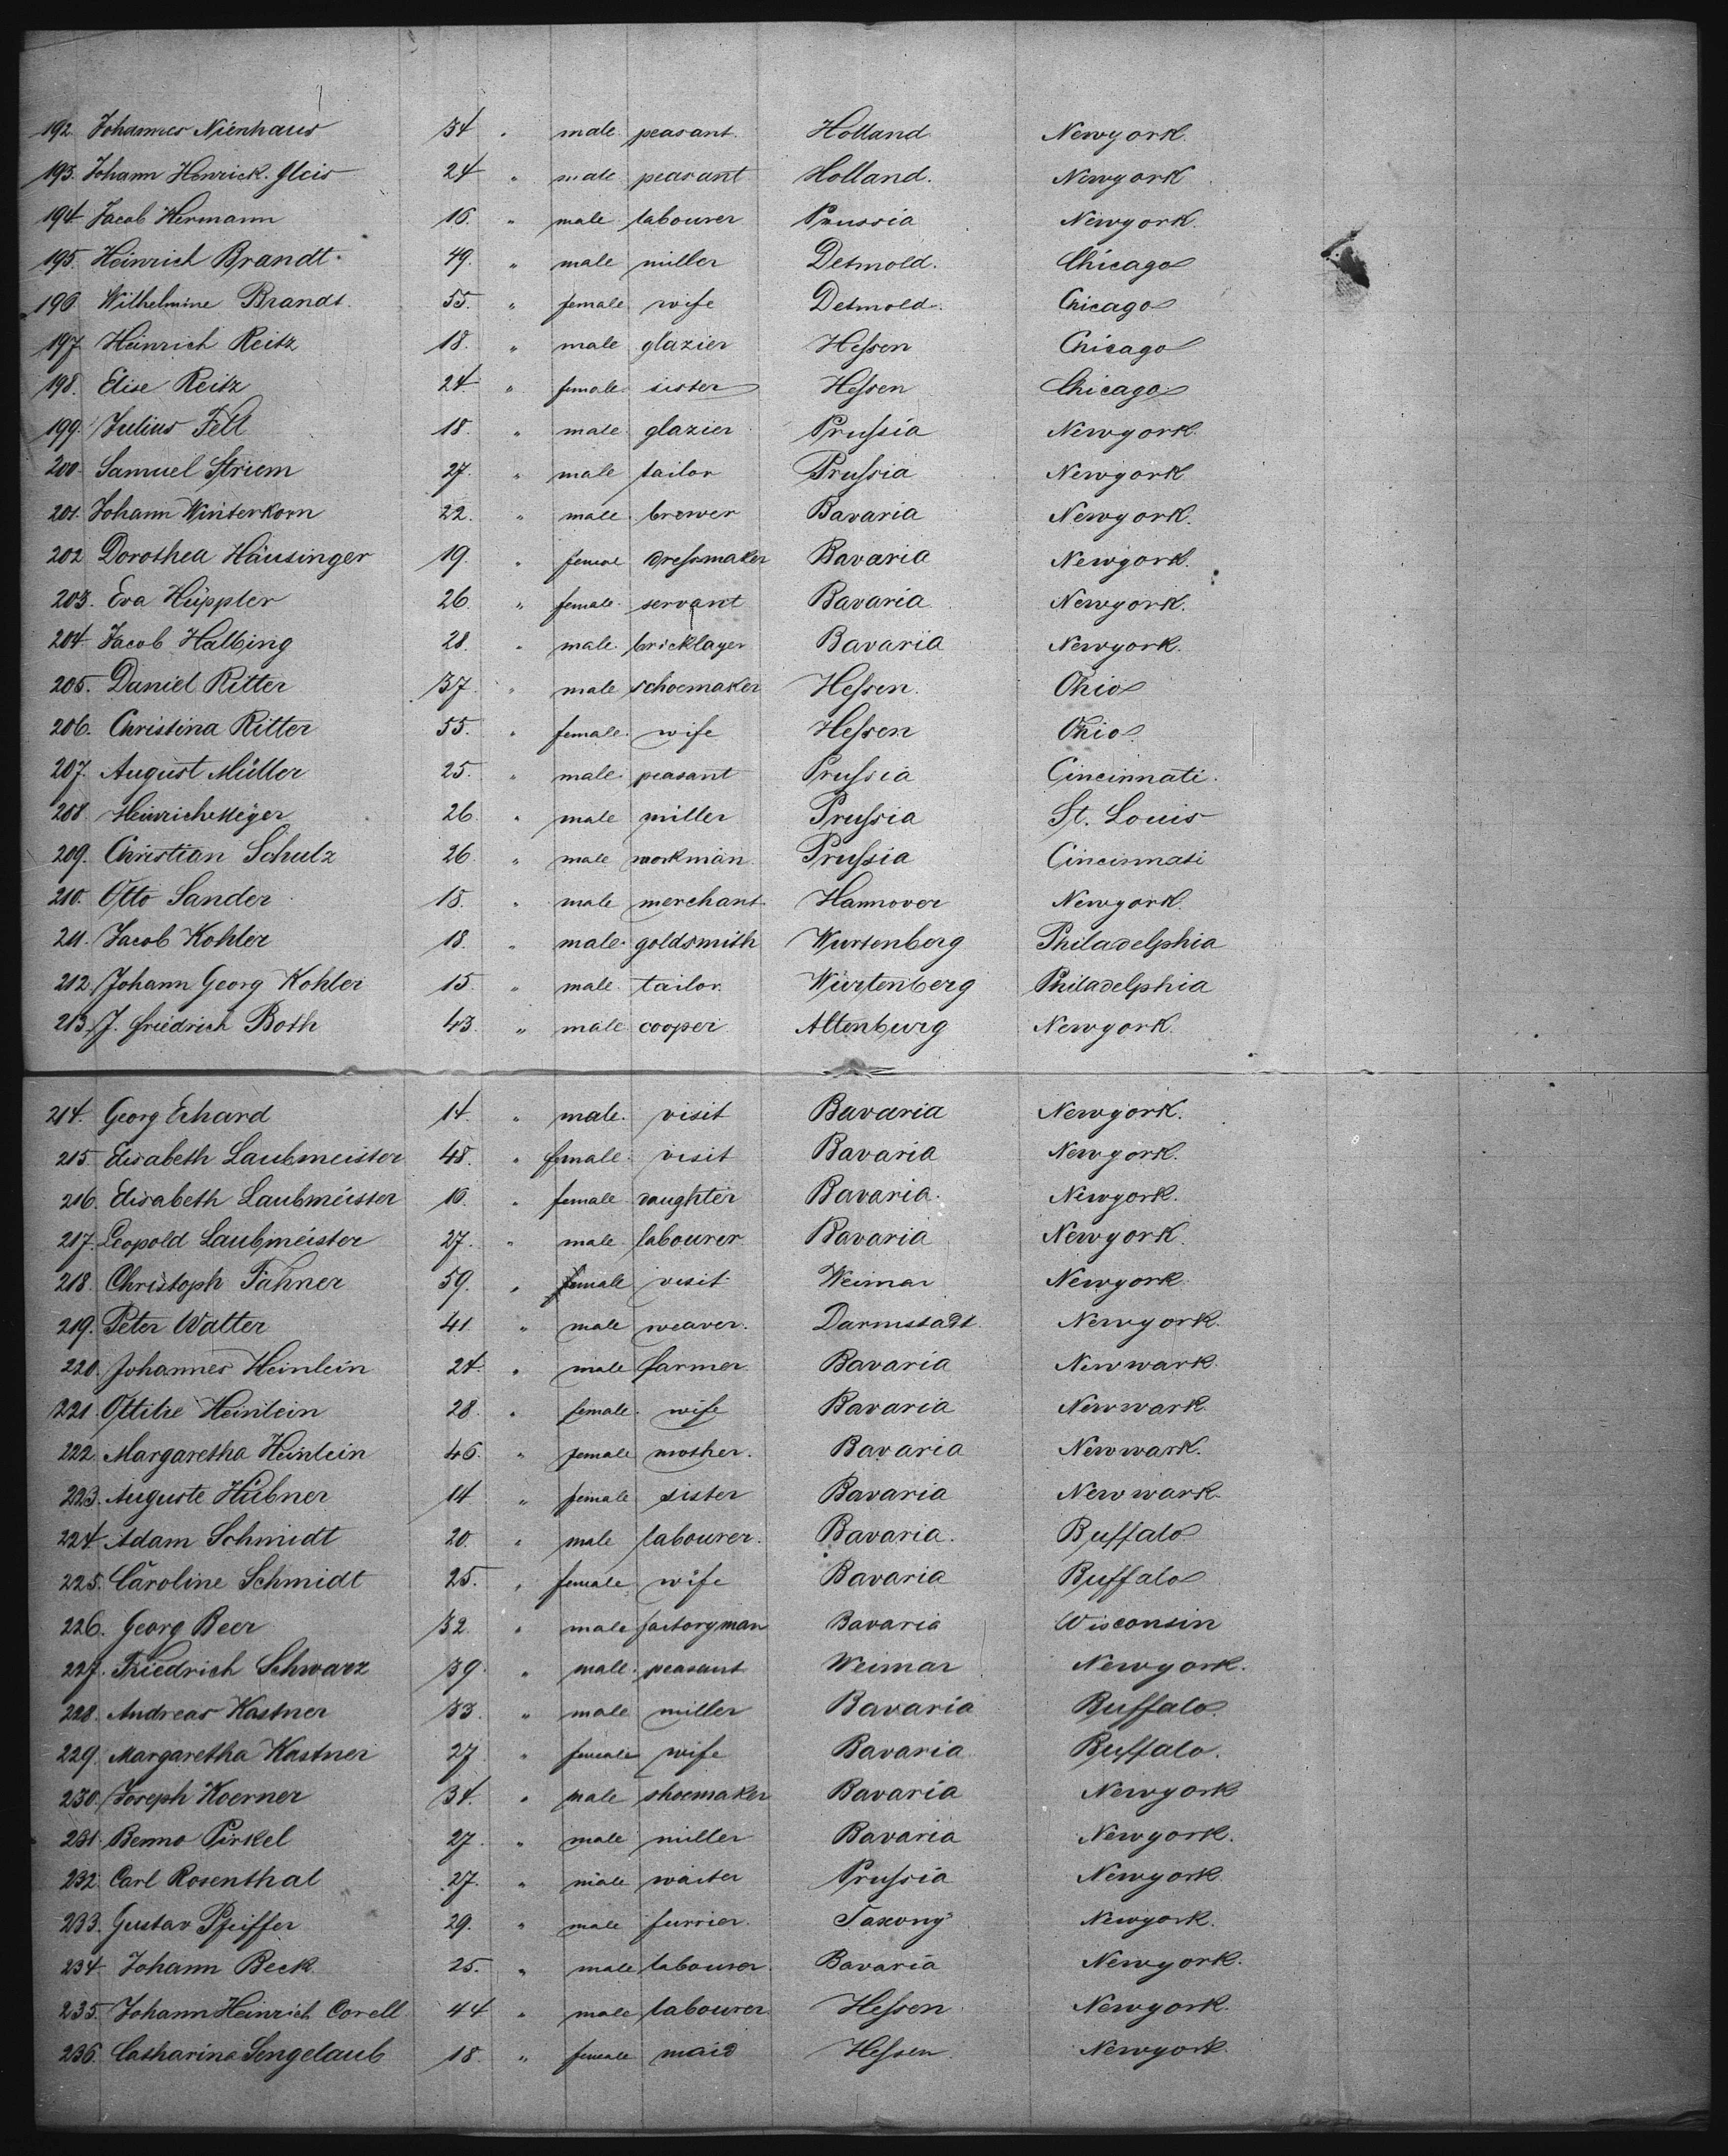 192. Johannes Nienhaus 34 " male peasant. Holland Newyork.
193. Johann Henrick. Gleis 24 " male peasant Holland. Newyork
194. Jacob Hermann 16. " male labourer Prussia Newyork.
195. Heinrich Brandt. 49. " male miller Detmold. Chicago
196 Wilhelmine Brandt. 55. " female wife Detmold. Chicago
197 Heinrich Reitz 18. " male glazier Hessen Chicago
198. Elise Reitz 24 " female sister Hessen Chicago
199. Julius Fell 18. " male glazier Prussia Newyork.
200. Samuel Striem 27. " male tailor Prussia Newyork
201. Johann Winterkorn 22. " male brewer Bavaria Newyork.
202 Dorothea Häusinger 19. " female dressmaker Bavaria Newyork.
203. Eva Hüppler 26 " female servant Bavaria Newyork.
204 Jacob Halbing 28. " male bricklayer Bavaria Newyork.
205. Daniel Ritter 37. " male schoemaker Hessen. Ohio
206. Christina Ritter 55. " female wife Hessen Ohio
207. August Müller 25. " male peasant Prussia Cincinnati.
208 Heinrich Meyer 26 " male miller Prussia St. Louis
209. Christian Schulz 26 " male workman. Prussia Cincinnati
210. Otto Sander 18. " male merchant Hannover Newyork.
211. Jacob Kohler 18. " male goldsmith Wurtenberg Philadelphia
212. Johann Georg Kohler 15. " male tailor. Würtenberg Philadelphia
213. J. Friedrich Both 43. " male cooper Altenburg Newyork.
214. Georg Erhard 14. " male. visit Bavaria Newyork.
215 Elisabeth Laubmeister 48. " female visit Bavaria Newyork.
216. Elisabeth Laubmeister 10. " female daughter Bavaria. Newyork.
217. Leopold Laubmeister 27. " male labourer Bavaria Newyork.
218. Christoph Fähner 59. " female visit Weimar Newyork
219. Peter Walter 41 " male weaver. Darmstadt. Newyork.
220. Johannes Heinlein 24. " male farmer Bavaria Newwark.
221 Ottilie Heinlein 28. " female. wife Bavaria Newwark.
222. Margaretha Heinlein 46. " female mother. Bavaria Newwark.
223. Auguste Hübner 14 " female sister Bavaria Newwark.
224 Adam Schmidt 20. " male labourer. Bavaria. Buffalo
225. Caroline Schmidt 25. " female wife Bavaria Buffalo
226. Georg Beer 32. " male factoryman Bavaria Wisconsin
227. Friedrich Schwarz 39. " male. peasant Weimar Newyork.
228. Andreas Kastner 33. " male miller Bavaria Buffalo.
229. Margaretha Kastner 27 " female wife Bavaria Buffalo.
230. Joseph Koerner 34. " male shoemaker Bavaria Newyork
231. Benno Pirkel 27. " male miller Bavaria Newyork.
232. Carl Rosenthal 27. " male waiter Prussia Newyork
233. Gustav Pfeiffer 29. " male furrier. Saxony Newyork.
234 Johann Beck 25. " male labourer. Bavaria Newyork.
235. Johann Heinrich Corell 44 " male labourer Hessen Newyork.
236. Catharina Sengelaub 18. " female maid Hessen. Newyork.